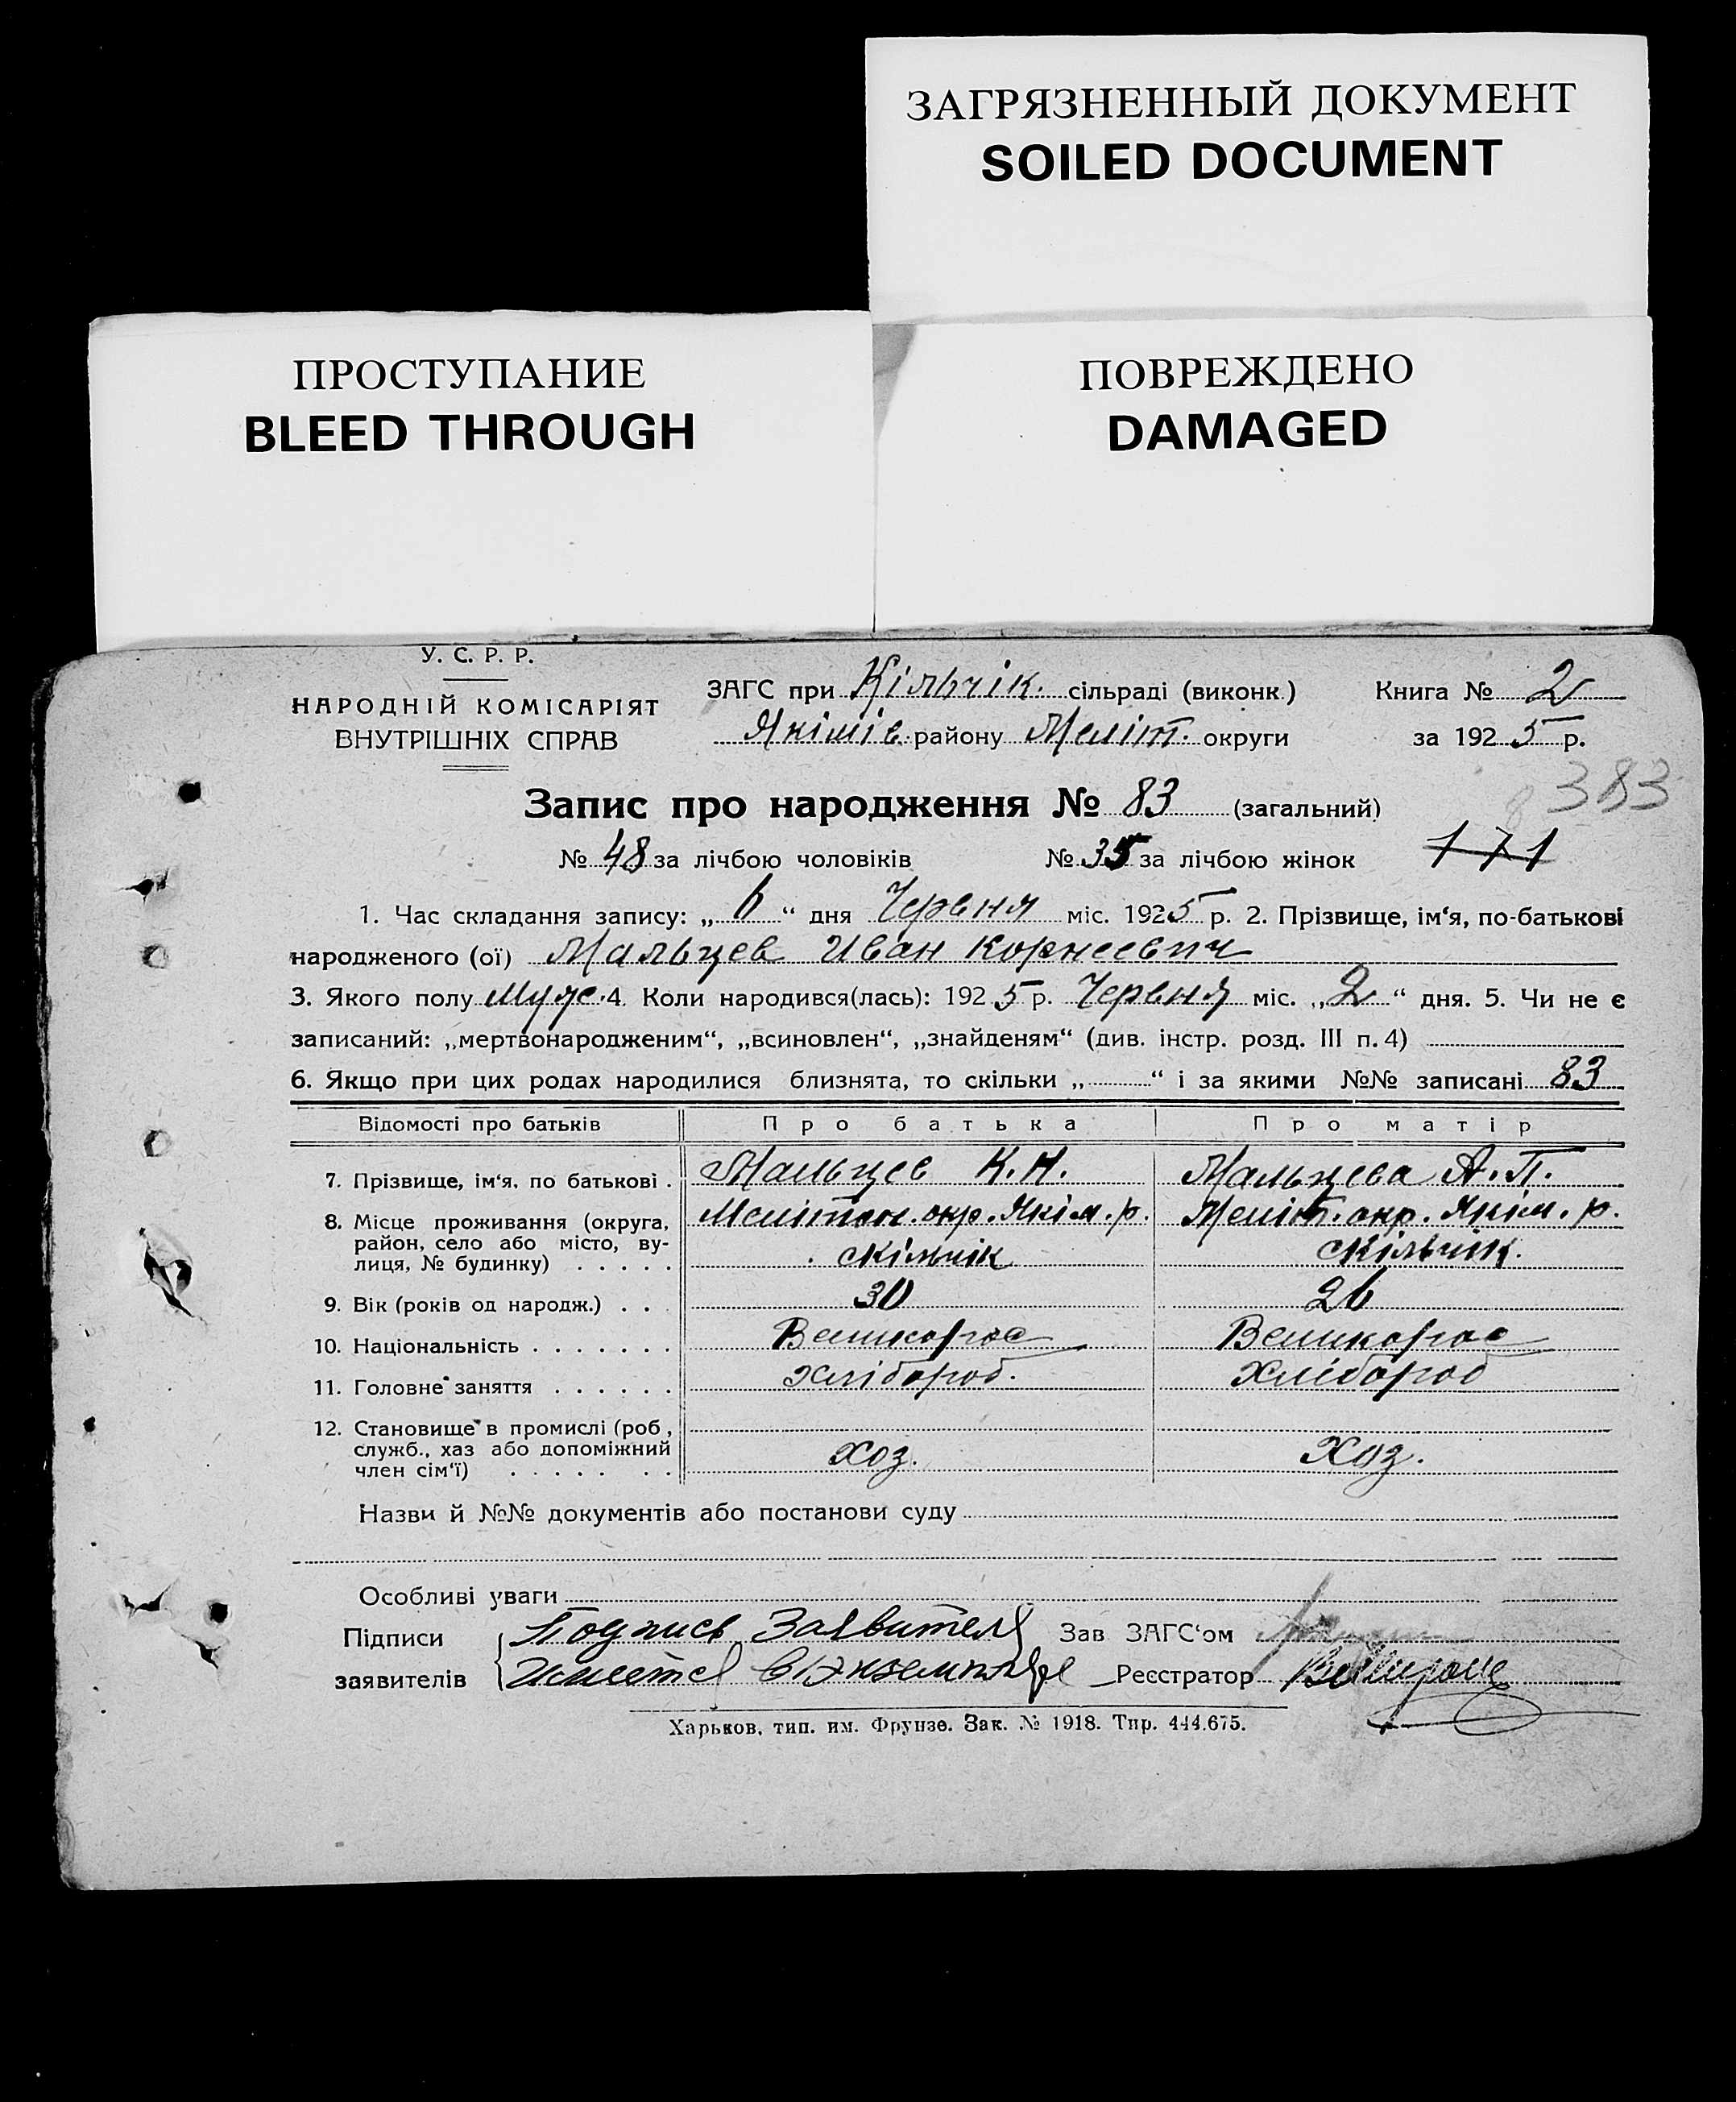 ЗАГРЯЗНЕННЫЙ ДОКУМЕНТ
SOILED DOCUMENT
ПРОСТУПАНИЕ
BLEED THROUGH
ПОВРЕЖДЕНО
DAMAGED
У. С. Р. Р.
НАРОДНІЙ КОМІСАРІЯТ
ВНУТРІШНІХ СПРАВ
ЗАГС при Кільчік. сільраді (виконк.) Книга № 2
Якімів. району Меліт. округи за 1925 р.
383
Запис про народження № 83 (загальний)
№ 48 за лічбою чоловіків № 35 за лічбою жінок 171
1. Час складання запису: „6“ дня Червня міс. 1925 р. 2. Прізвище, ім‘я, по-батькові
народженого (ої) Мальцев Иван Корнеевич
3. Якого полу Муж. 4. Коли народився(лась): 1925 р. Червня міс. „2“ дня. 5. Чи не є
записаний: „мертвонародженим“, „всиновлен“, „знайденям“ (див. інстр. розд. III п. 4)
6. Якщо при цих родах народилися близнята, то скільки „ “ і за якими №№ записані 83
Відомості про батьків Про батька Про матір
7. Прізвище, ім‘я, по батькові . Мальцев К. Н. Мальцева А. П.
8. Місце проживання (округа, Мелітоп. окр. Якім. р. Меліт. окр. Якім. р.
район, село або місто, ву-
лиця, № будинку) . . . . . с Кільчік с Кільчік.
9. Вік (років од народж.) . . . 30 26
10. Національність . . . . . . . Великорос Великорос
11. Головне заняття . . . . . . Хлібороб. Хлібороб
12. Становище в промислі (роб.,
служб., хаз або допоміжний Хоз. Хоз.
член сім‘ї) . . . . . . .
Назви й №№ документів або постанови суду
Особливі уваги
Підписи Подпись Заявителя Зав ЗАГС‘ом
заявителів имеется в 1 экземпляре Реєстратор
Харьков, тип. им. Фрунзе. Зак. № 1918. Тир. 444.675.